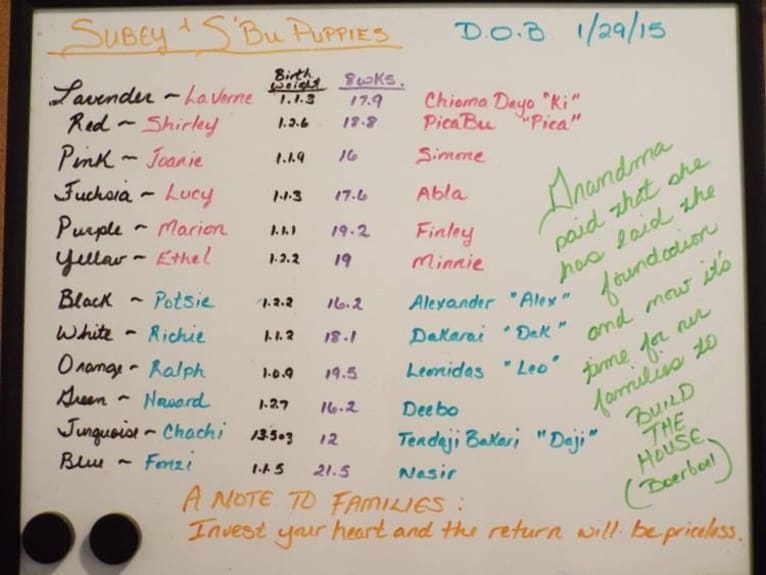 SUBEY & S'BU PUPPIES D.O.B 1/29/15
Birth weight 8wks.
Lavender ~ LaVerne 1.1.3 17.9 Chioma Dayo "Ki"
Red ~ Shirley 1.2.6 18.8 PicaBu "Pica"
Pink ~ Joanie 1.1.9 16 Simone
Fuchsia ~ Lucy 1.1.3 17.6 Abla
Purple ~ Marion 1.1.1 19.2 Finley
Yellow ~ Ethel 1.2.2 19 Minnie
Black ~ Potsie 1.2.2 16.2 Alexander "Alex"
White ~ Richie 1.1.2 18.1 Dakarai "Dak"
Orange ~ Ralph 1.0.9 19.5 Leonidas "Leo"
Green ~ Howard 1.2.7 16.2 Deebo
Turquoise ~ Chachi 13.5oz 12 Tendaji Bakari "Daji"
Blue ~ Fonzi 1.1.5 21.5 Nasir
Grandma
said that she
has laid the
foundation
and now it's
time for our
families to
BUILD
THE
HOUSE
(Boerboel)
A NOTE TO FAMILIES:
Invest your heart and the return will be priceless.